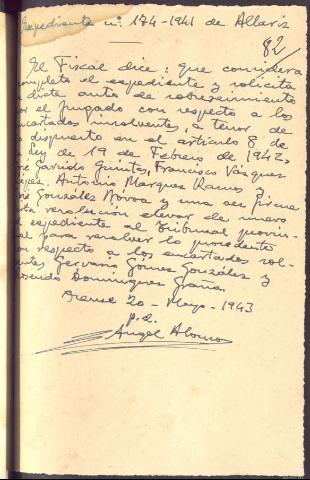 Expediente nº. 174-1941 de Allariz
82/
El Fiscal dice: que considera
completo el expediente y solicita
se dicte auto de sobreseimiento
por el Juzgado con respecto a los
encartados insolventes, a tenor de
lo dispuesto en el artículo 8 de
la Ley de 19 de Febrero de 1942,
José Garrido Quintas, Francisco Vásques
Antonio Marques Ramos y
José González Nóvoa y una vez firme
esta resolución elevar de nuevo
el expediente al Tribunal provin-
cial para resolver lo procedente
con respecto a los encartados sol-
ventes Gervasio Gómes González y
Rosendo Domingues Grana.
Orense 20 - Mayo - 1943
p.d.
Angel Alonso